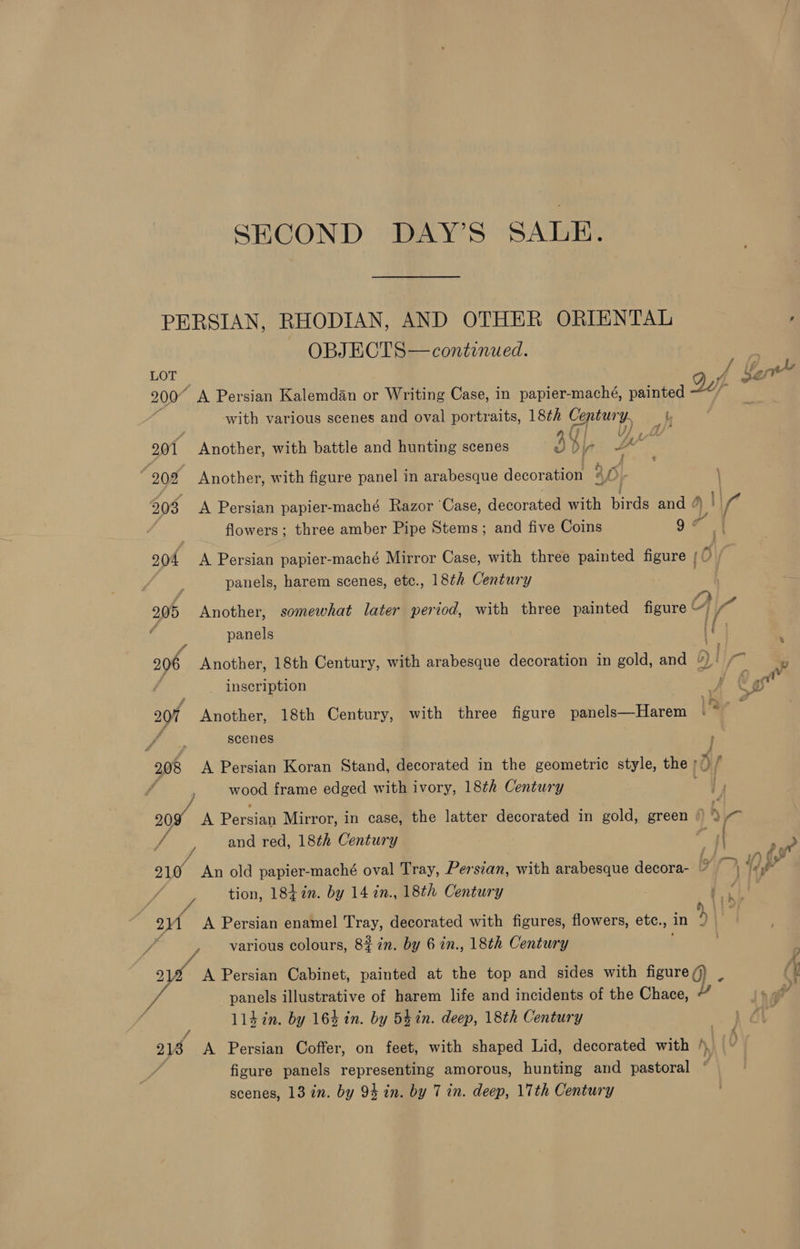 SECOND DAY'S SALE.
PERSIAN, RHODIAN, AND OTHER ORIENTAL
OBJECTS—continued.
LOT
200 A Persian Kalemdân or Writing Case, in papier-maché, painted
with various scenes and oval portraits, 18th Century
201 Another, with battle and hunting scenes
202 Another, with figure panel in arabesque decoration
203 A Persian papier-maché Razor Case, decorated with birds and
flowers; three amber Pipe Stems; and five Coins 9
204 A Persian papier-maché Mirror Case, with three painted figure
panels, harem scenes, etc., 18th Century
205 Another, somewhat later period, with three painted figure
panels
206 Another, 18th Century, with arabesque decoration in gold, and
inscription
207 Another, 18th Century, with three figure panels—Harem
scenes
208 A Persian Koran Stand, decorated in the geometric style, the
wood frame edged with ivory, 18th Century
209 A Persian Mirror, in case, the latter decorated in gold, green
and red, 18th Century
210 An old papier-maché oval Tray, Persian, with arabesque decora-
tion, 18¼ in. by 14 in., 18th Century
211 A Persian enamel Tray, decorated with figures, flowers, etc., in
various colours, 8¾ in. by 6 in., 18th Century
212 A Persian Cabinet, painted at the top and sides with figure
panels illustrative of harem life and incidents of the Chace,
11½ in. by 16½ in. by 5½ in. deep, 18th Century
213 A Persian Coffer, on feet, with shaped Lid, decorated with
figure panels representing amorous, hunting and pastoral
scenes, 13 in. by 9½ in. by 7 in. deep, 17th Century